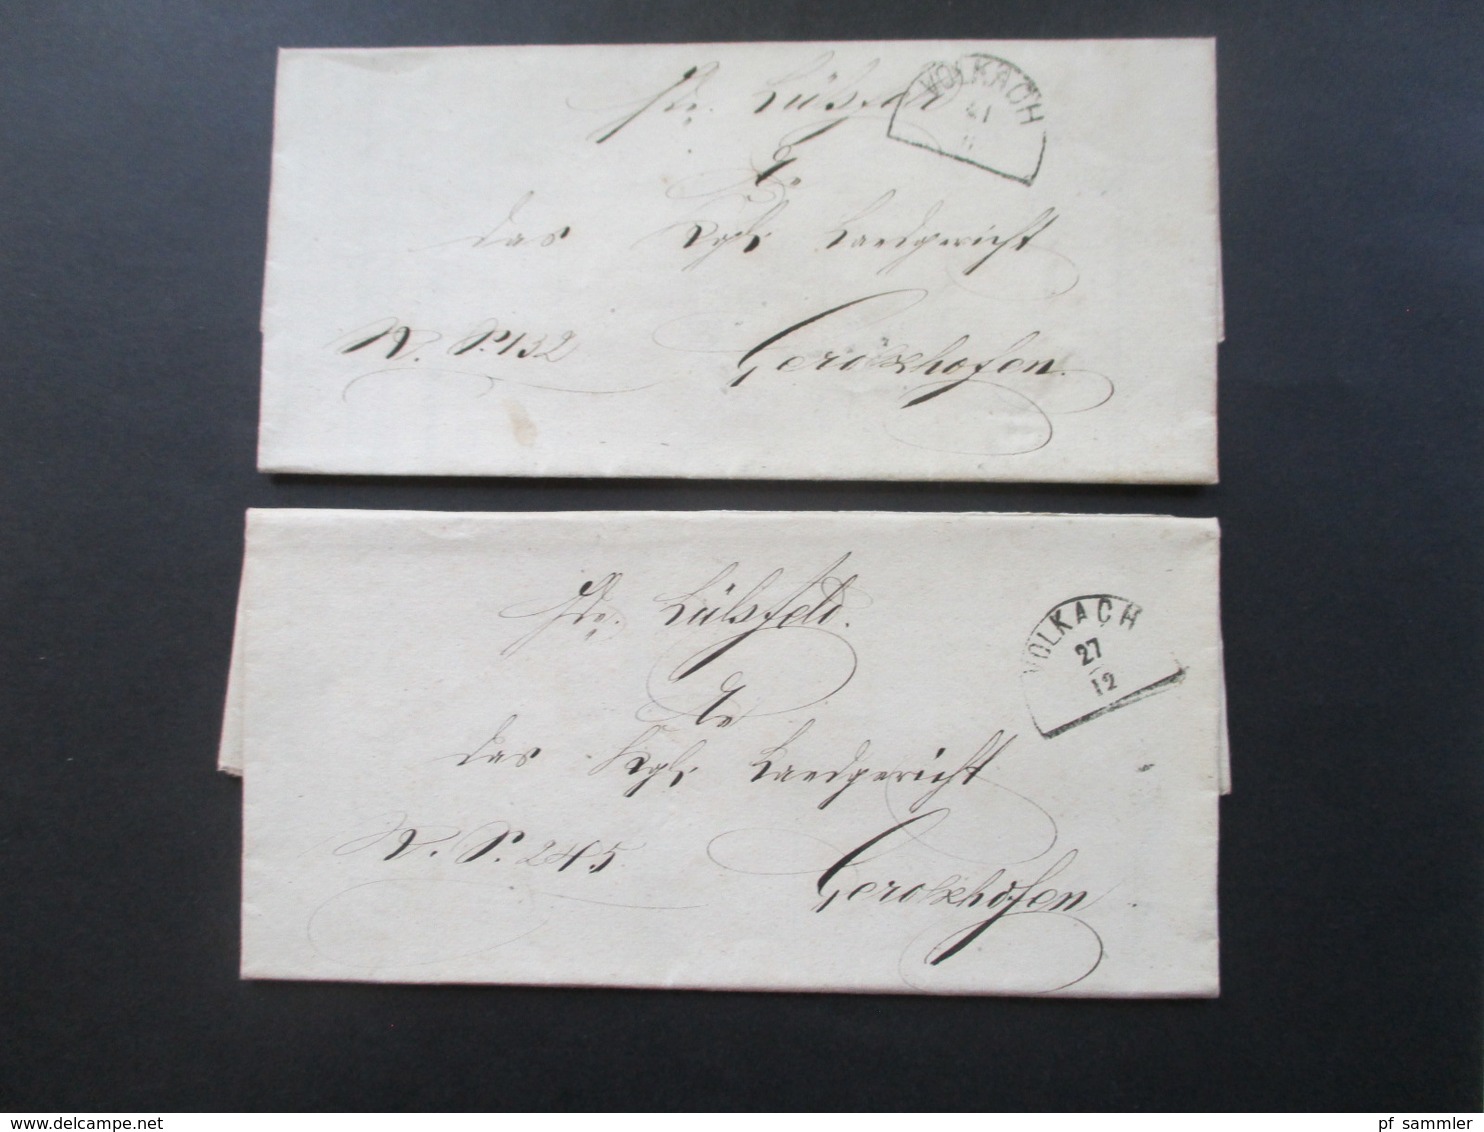 VOLKACH
Lülsfeld
das Kgl. Landgericht
N. P. 132
Gerolzhofen.
Lülsfeld.
VOLKACH
27
12
das Kgl. Landgericht
N. P. 245.
Gerolzhofen
© www.delcampe.net
pf_sammler